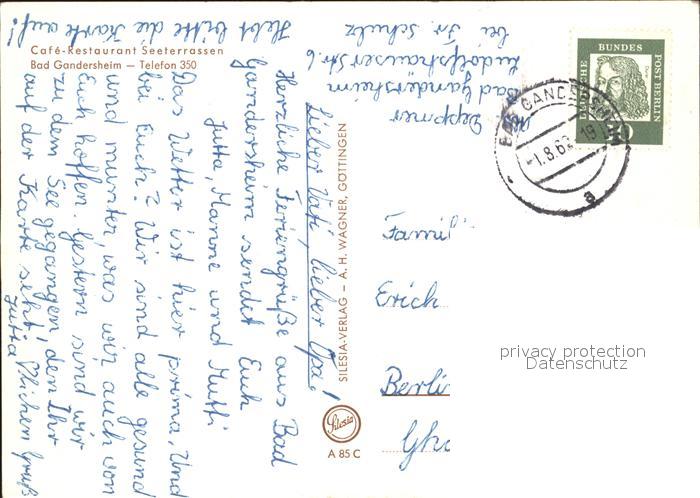 Café-Restaurant Seeterrassen
Bad Gandersheim — Telefon 350
Lieber Vati, lieber Opa!
Herzliche Feriengrüße aus Bad
Gandersheim sendet Euch
Jutta, Manne und Mutti
Das Wetter ist hier prima. Und
bei Euch? Wir sind alle gesund
und munter, was wir auch von
Euch hoffen. Gestern sind wir
zu dem See gegangen, den Ihr
auf der Karte seht!
Jutta
Hebt bitte die Karte auf!
SILESIA-VERLAG — A. H. WAGNER, GÖTTINGEN
Silesia
A 85 C
Deppner
Bad Gandersheim
Ludolfshauser Str. 6
bei Fr. Schulz
DEUTSCHE BUNDESPOST BERLIN
BAD GANDERSHEIM
-1.8.62-19
a
Erich
Berli
privacy protection
Datenschutz